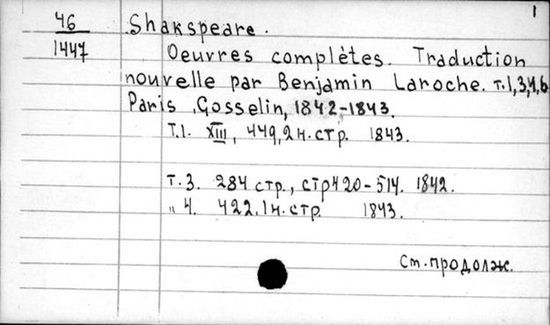 1
46 Shakspeare.
1447 Oeuvres complètes. Traduction
nouvelle par Benjamin Laroche. т.1,3,4,6
Paris, Gosselin, 1842-1843.
Т.1. XIII, 449, 2 н. стр. 1843.
т.3. 284 стр., стр 420-514. 1842.
„ 4. 422. 1 н. стр 1843.
См. продолж.